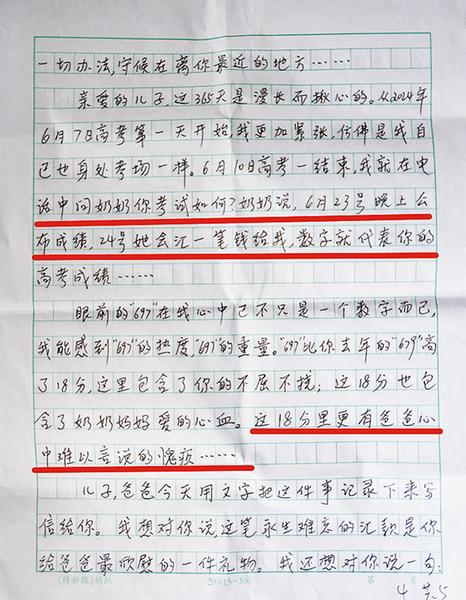 一切办法,守候在离你最近的地方……
亲爱的儿子,这365天是漫长而揪心的。从2024年
6月7日高考第一天开始我更加紧张,仿佛是我自
己也身处考场一样。6月10日高考一结束,我就在电
话中问奶奶你考试如何?奶奶说,6月23号晚上公
布成绩,24号她会汇一笔钱给我,数字就代表你的
高考成绩……
眼前的"697"在我心中已不只是一个数字而已,
我能感到"697"的热度,"697"的重量。"697"比你去年的"679"高
了18分,这里包含了你的不屈不挠;这18分也包
含了奶奶妈妈爱的心血。这18分里更有爸爸心
中难以言说的愧疚……
儿子,爸爸今天用文字把这件事记录下来写
信给你。我想对你说,这笔永生难忘的汇款是你
给爸爸最欣慰的一件礼物。我还想对你说一句:
20×15=300 第 页
4 共5